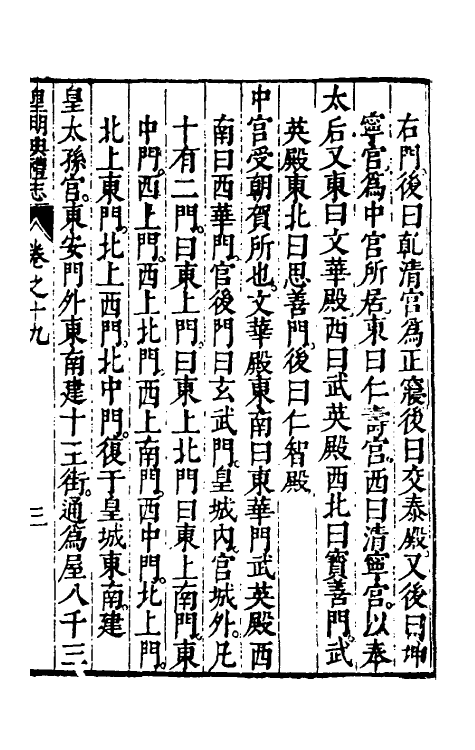 右門後曰乹清宫為正寢後曰交泰殿又後曰坤
寧宫為中宫所居東曰仁壽宫西曰清寧宫以奉
太后又東曰文華殿西曰武英殿西北曰寳善門武
英殿東北曰思善門後曰仁智殿
中宫受朝賀所也文華殿東南曰東華門武英殿西
南曰西華門宫後門曰玄武門皇城内宫城外凡
十有二門曰東上門曰東上北門曰東上南門東
中門西上門西上北門西上南門西中門北上門
北上東門北上西門北中門復于皇城東南建
皇太孫宫東安門外東南建十王街通為屋八千三
皇明典禮志 卷之十九 三